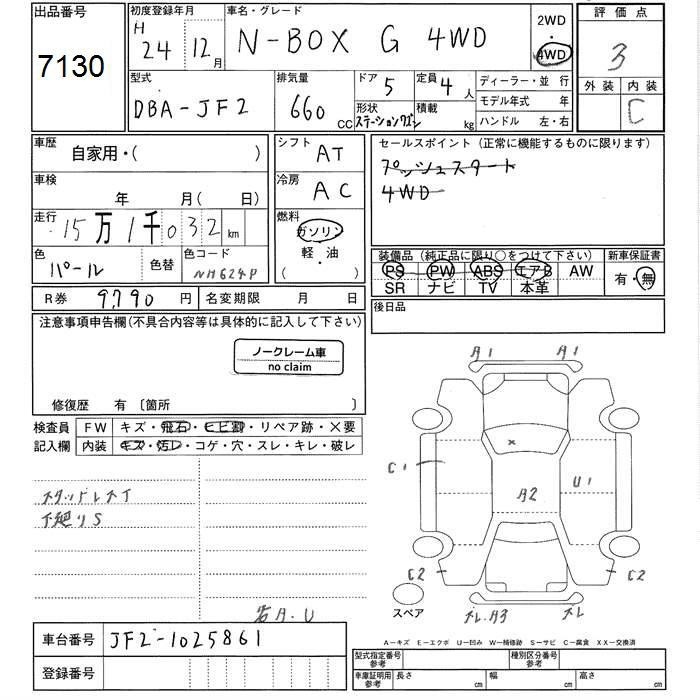 出品番号
7130
初度登録年月
H 24 12月
車名・グレード
N-BOX G 4WD
2WD
・
4WD
評価点
3
外装 内装
C
型式
DBA-JF2
排気量
660 CC
ドア 5
定員 4人
形状 ステーションワゴン
積載 kg
ディーラー・並 行
モデル年式 年
ハンドル 左・右
車歴
自家用・( )
車検
年 月( 日)
走行
15万1千032km
色
パール
色替
色コード
NH624P
シフト AT
冷房 AC
燃料
ガソリン
軽・油
( )
セールスポイント (正常に機能するものに限ります)
プッシュスタート
4WD
装備品 (純正品に限り○をつけて下さい)
PS PW ABS エアB AW
SR ナビ TV 本革
新車保証書
有・無
R券 9,790円
名変期限 月 日
後日品
注意事項申告欄(不具合内容等は具体的に記入して下さい)
ノークレーム車
no claim
修復歴 有 〔箇所 〕
検査員
記入欄
FW キズ・飛石・ヒビ割・リペア跡・×要
内装 キズ・汚レ・コゲ・穴・スレ・キレ・破レ
スタッドレスT
下廻りS
A.U
A1 A1
C1
×
A2
U1
C2 C2
スペア
ズレ.A3 ズレ
A−キズ E−エクボ U−凹み W−補修跡 S−サビ C−腐食 XX−交換済
車台番号 JF2-1025861
登録番号
型式指定番号
参考
種別区分番号
参考
車庫証明用
参考
長さ cm 幅 cm 高さ cm